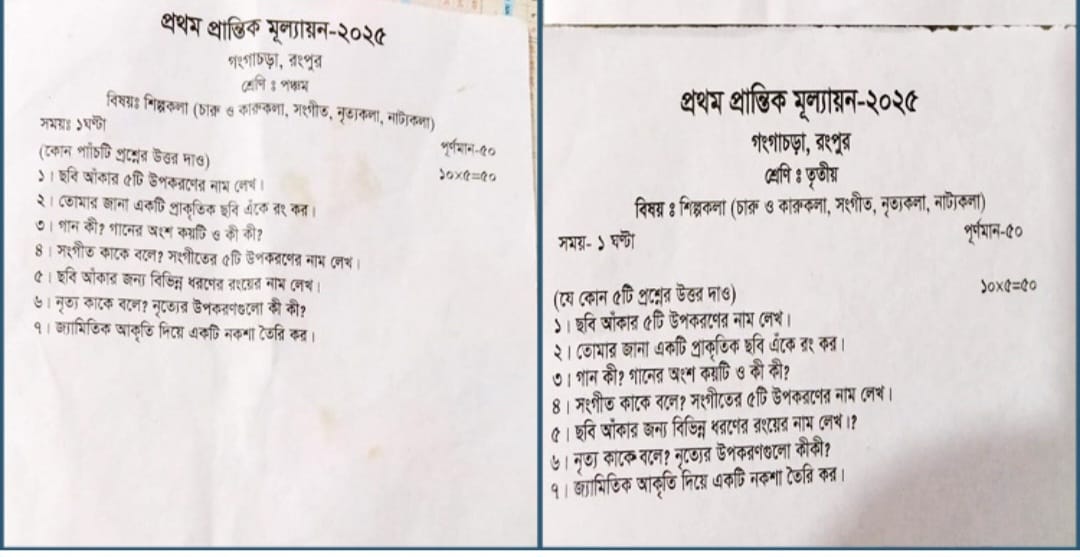 প্রথম প্রান্তিক মূল্যায়ন-২০২৫
গংগাচড়া, রংপুর
শ্রেণি ঃ পঞ্চম
বিষয়ঃ শিল্পকলা (চারু ও কারুকলা, সংগীত, নৃত্যকলা, নাট্যকলা)
সময়ঃ ১ঘন্টা
পূর্ণমান-৫০
(কোন পাঁচটি প্রশ্নের উত্তর দাও)
১০×৫=৫০
১। ছবি আঁকার ৫টি উপকরণের নাম লেখ।
২। তোমার জানা একটি প্রাকৃতিক ছবি এঁকে রং কর।
৩। গান কী? গানের অংশ কয়টি ও কী কী?
৪। সংগীত কাকে বলে? সংগীতের ৫টি উপকরণের নাম লেখ।
৫। ছবি আঁকার জন্য বিভিন্ন ধরণের রংয়ের নাম লেখ।
৬। নৃত্য কাকে বলে? নৃত্যের উপকরণগুলো কী কী?
৭। জ্যামিতিক আকৃতি দিয়ে একটি নকশা তৈরি কর।
প্রথম প্রান্তিক মূল্যায়ন-২০২৫
গংগাচড়া, রংপুর
শ্রেণি ঃ তৃতীয়
বিষয় ঃ শিল্পকলা (চারু ও কারুকলা, সংগীত, নৃত্যকলা, নাট্যকলা)
সময়- ১ ঘন্টা
পূর্ণমান-৫০
(যে কোন ৫টি প্রশ্নের উত্তর দাও)
১০×৫=৫০
১। ছবি আঁকার ৫টি উপকরণের নাম লেখ।
২। তোমার জানা একটি প্রাকৃতিক ছবি এঁকে রং কর।
৩। গান কী? গানের অংশ কয়টি ও কী কী?
৪। সংগীত কাকে বলে? সংগীতের ৫টি উপকরণের নাম লেখ।
৫। ছবি আঁকার জন্য বিভিন্ন ধরণের রংয়ের নাম লেখ।?
৬। নৃত্য কাকে বলে? নৃত্যের উপকরণগুলো কীকী?
৭। জ্যামিতিক আকৃতি দিয়ে একটি নকশা তৈরি কর।